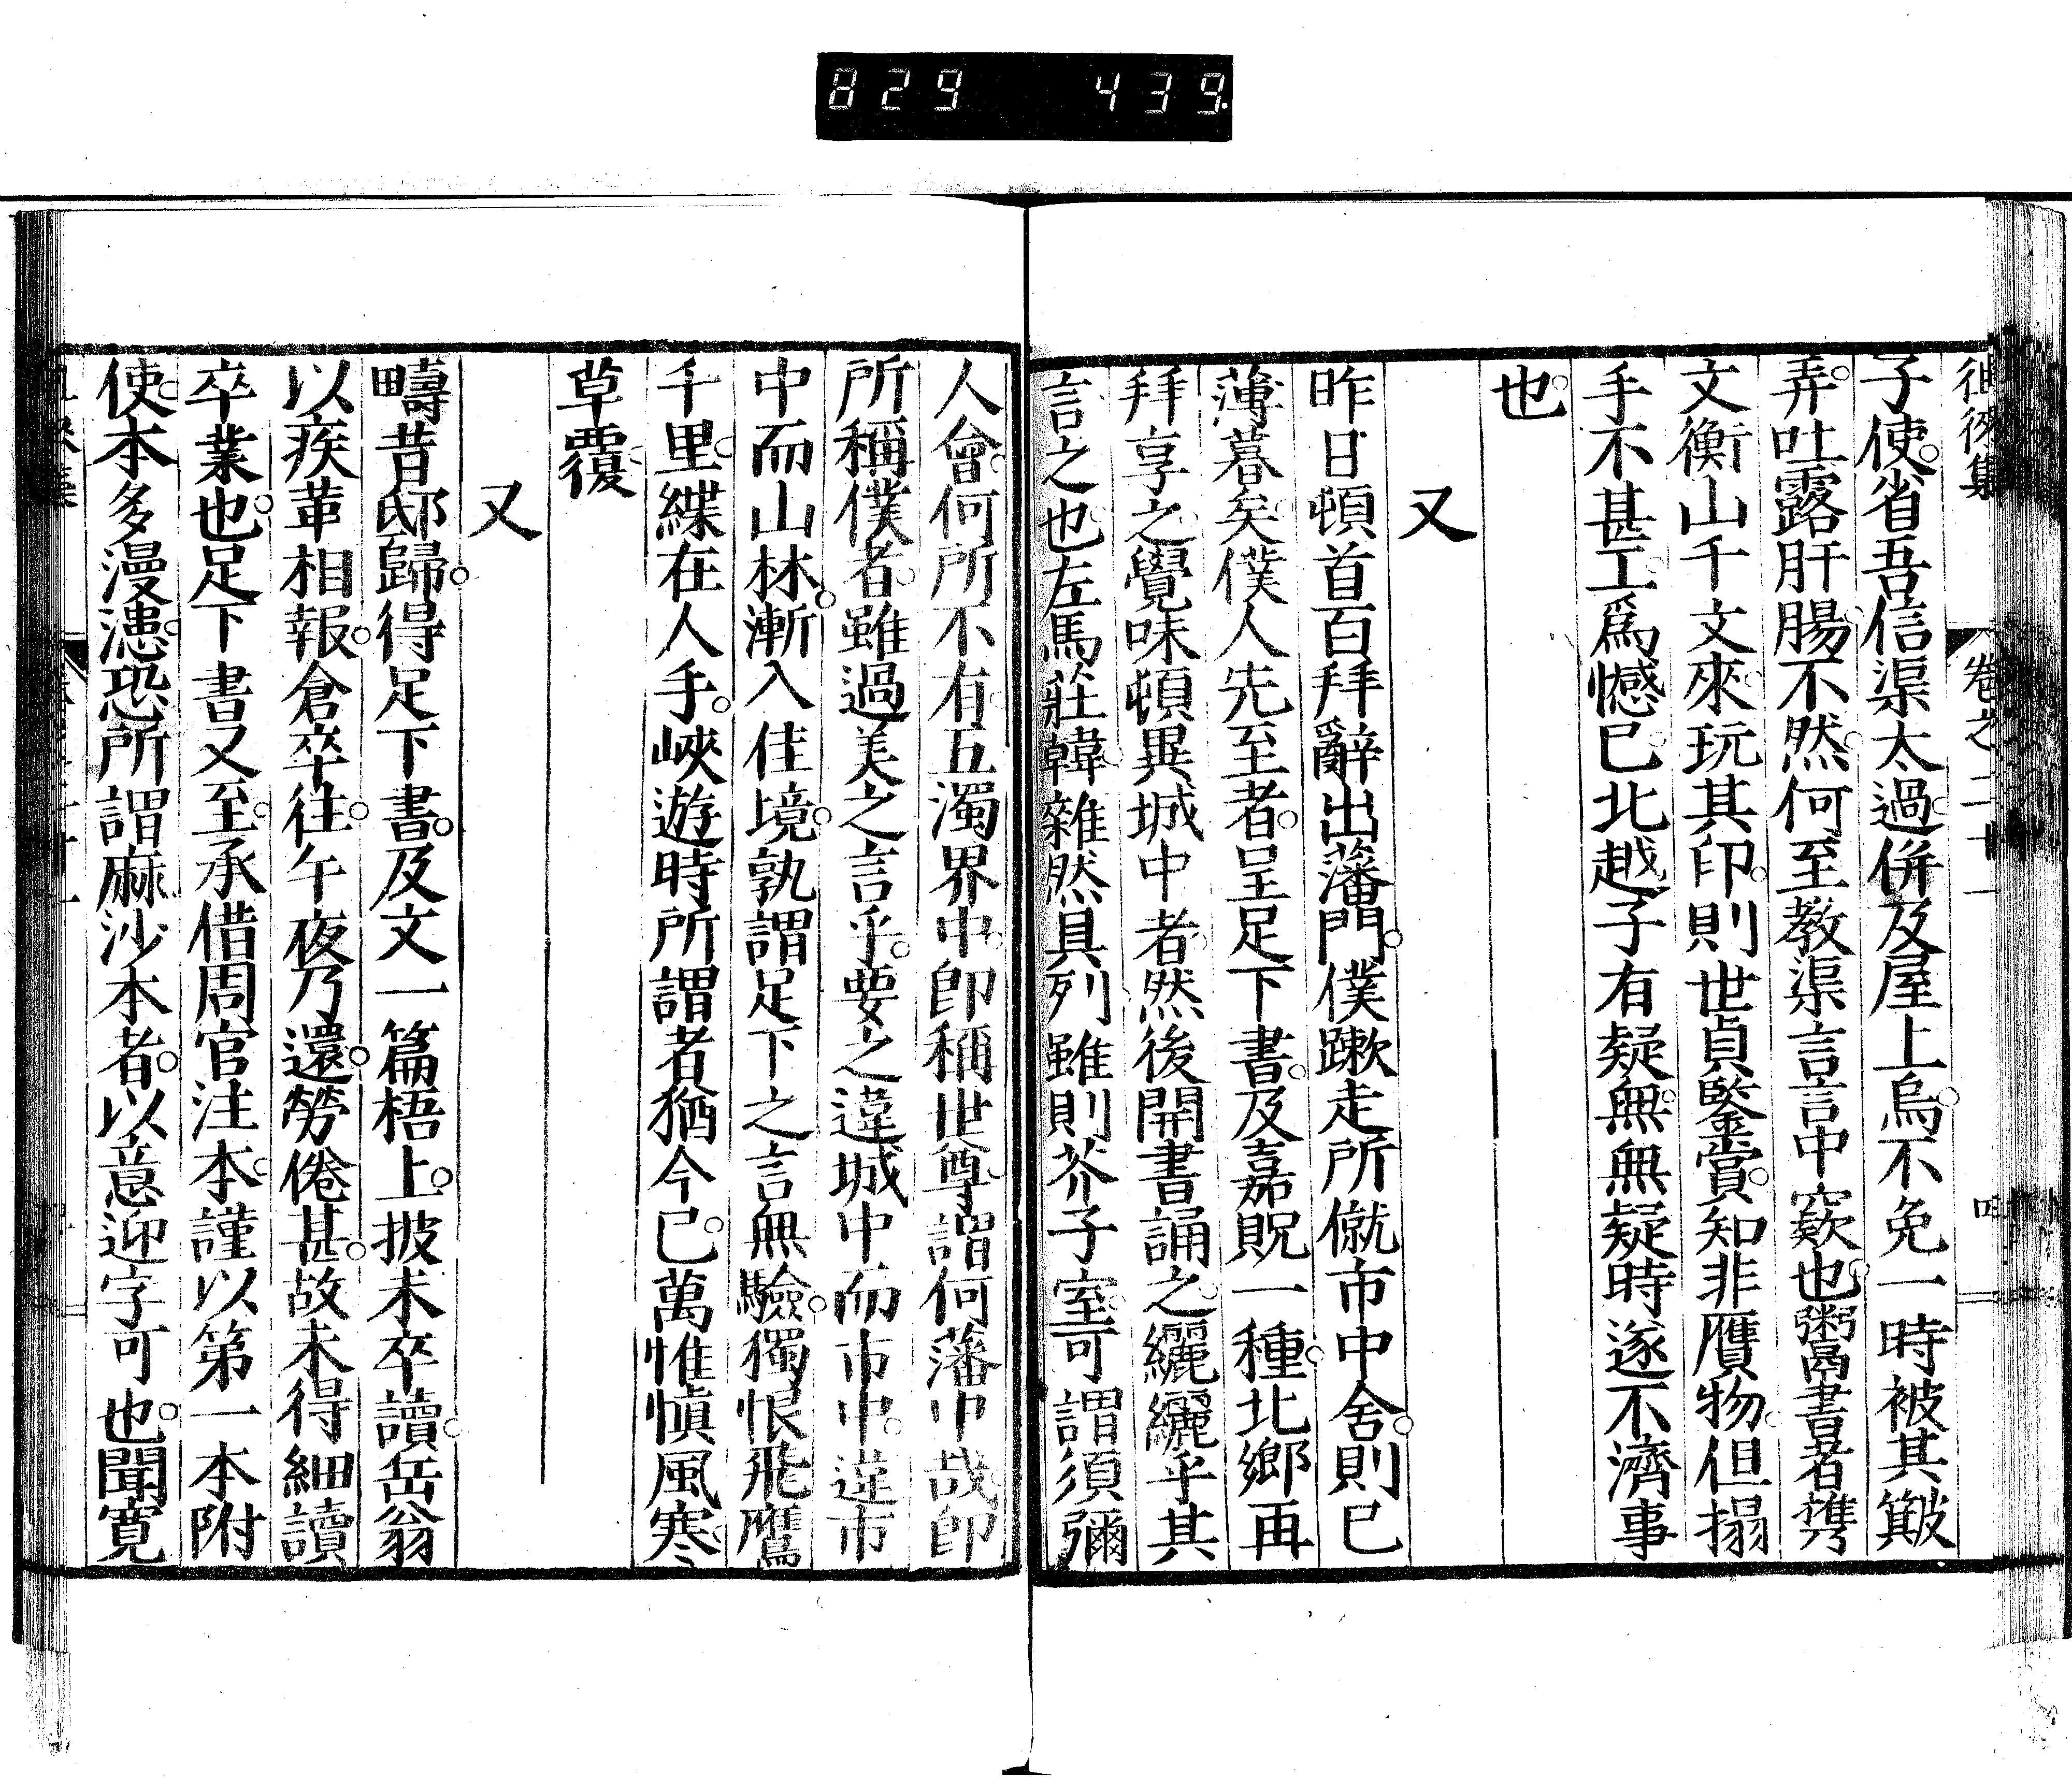 829 439.
徂徠集 卷之二十一 四
子使。省吾信渠太過。併及屋上烏。不免一時被其簸
弄。吐露肝腸。不然。何至教渠言言中窾也。鬻書者携
文衡山千文來。玩其印。則世貞鑒賞。知非贋物。但搨
手不甚工。爲憾已。北越子有疑無。無疑時遂不濟事
也。
又
昨日頓首百拜辭出藩門。僕躐走所僦市中舍。則已
薄暮矣。僕人先至者。呈足下書。及嘉貺一種。北鄉再
拜享之。覺味頓異城中者。然後開書誦之。纚纚乎其
言之也。左馬莊韓。雜然具列。雖則芥子室。可謂須彌
人會。何所不有。五濁界中。卽稱世尊。謂何藩中哉。卽
所稱僕者。雖過美之言乎。要之違城中而市中。違市
中而山林。漸入佳境。孰謂足下之言無驗。獨恨飛鷹
千里。緤在人手。峽遊時所謂者猶今已。萬惟愼風寒。
草覆。
又
疇昔邸歸。得足下書。及文一篇梧上。披未卒讀。岳翁
以疾革相報。倉卒往。午夜乃還。勞倦甚。故未得細讀
卒業也。足下書又至。承借周官注本。謹以第一本附
使。本多漫漶。恐所謂麻沙本者。以意迎字可也。聞寬